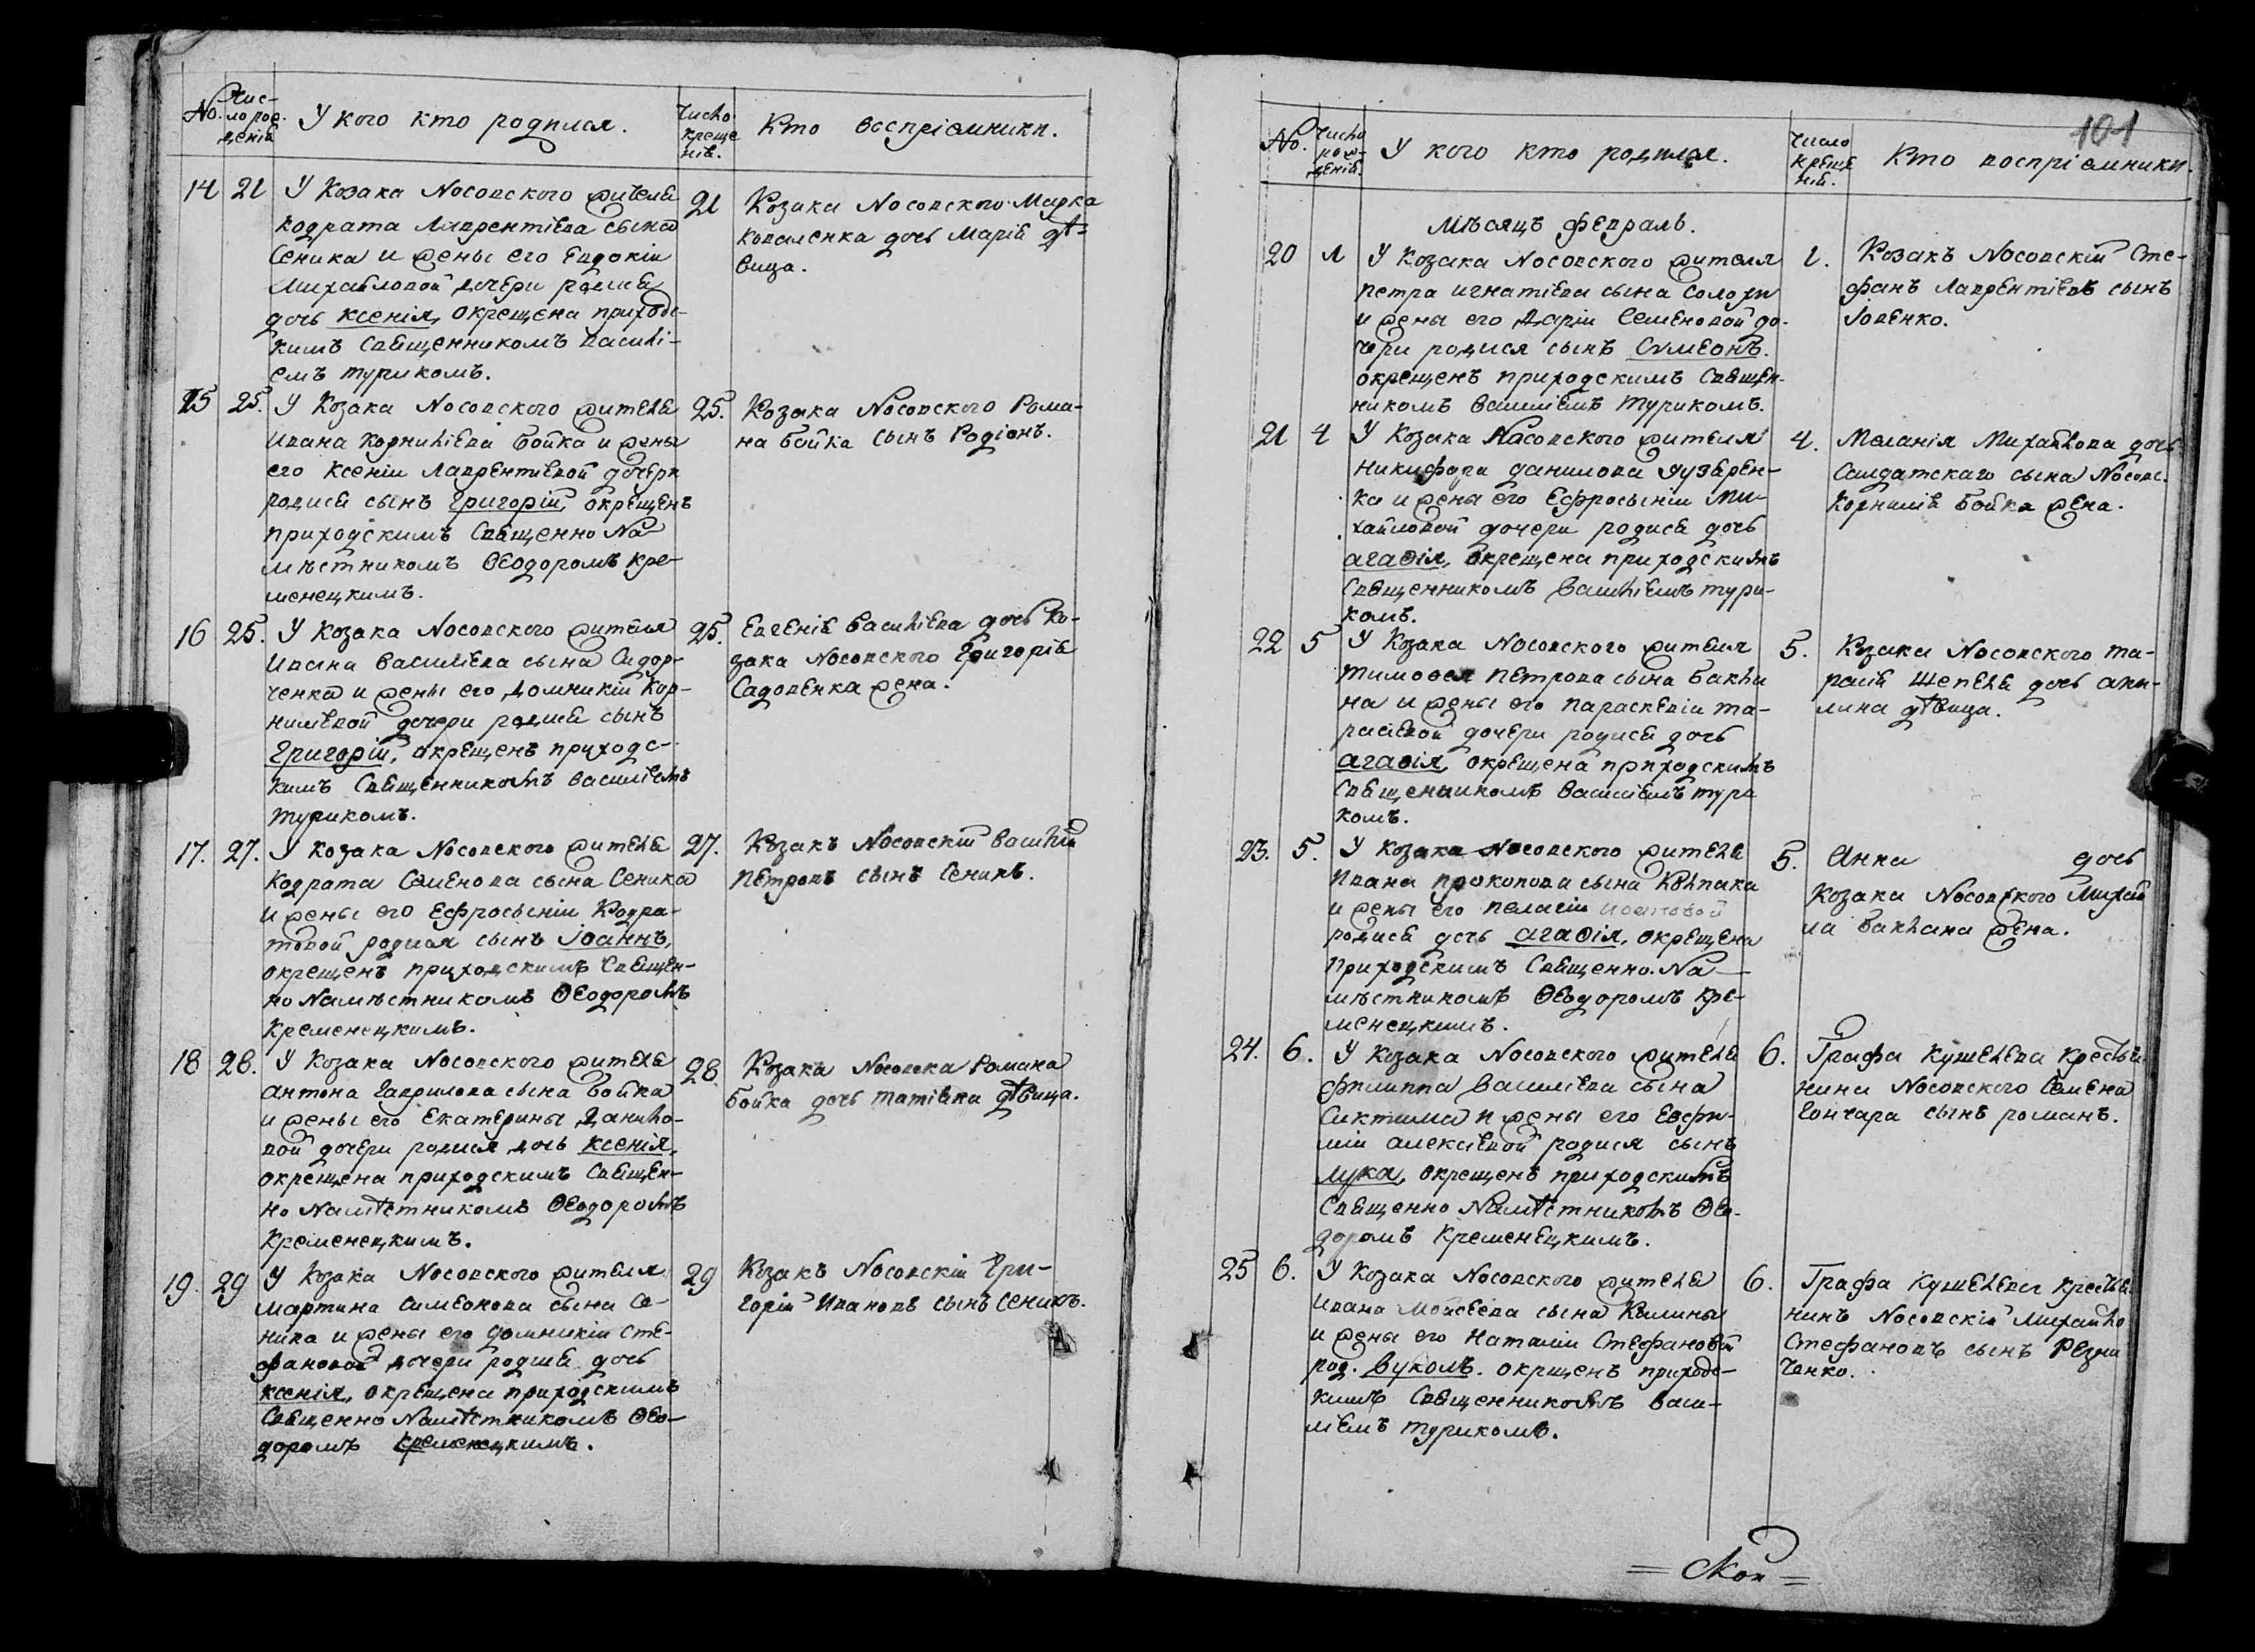 No.
Чис-
ло рож-
деній
У кого кто родился.
Число
креще
нія.
Кто воспріемники.
14
21
У Козака Носовского жителя
Кодрата Лаврентіева сына
Сеника и жены его Евдокіи
Михайловой дочери родися
дочь Ксенія, окрещена приходс-
кимъ Священникомъ Василі-
емъ Турикомъ.
21
Козака Носовского Марка
Коваленка дочь Марія дѣ-
вица.
15
25.
У Козака Носовского жителя
Ивана Корниліева Бойка и жены
его Ксеніи Лаврентіевой дочери
родися сынъ Григорій, окрещенъ
приходскимъ Священно На
мѣстникомъ Ѳеодоромъ Кре-
менецкимъ.
25.
Козака Носовского Рома-
на Бойка сынъ Родіонъ.
16
25.
У Козака Носовского жителя
Ивана Василіева сына Сидор-
ченка и жены его Домникіи Кор-
ниліевой дочери родися сынъ
Григорій, окрещенъ приходс-
кимъ Священникомъ Василіемъ
Турикомъ.
25.
Евгенія Василіева дочь Ко-
зака Носовского Григорія
Садовенка жена.
17.
27.
У Козака Носовского жителя
Кодрата Семенова сына Сеника
и жены его Ефросыніи Кодра-
товой родися сынъ Іоаннъ,
окрещенъ приходскимъ Священ-
но Намѣстникомъ Ѳеодоромъ
Кременецкимъ.
27.
Козакъ Носовскій Василій
Петровъ сынъ Сеникъ.
18
28.
У Козака Носовского жителя
Антона Гаврилова сына Бойка
и жены его Екатерины Данило-
вой дочери родися дочь Ксенія,
окрещена приходскимъ Священ-
но Намѣстникомъ Ѳеодоромъ
Кременецкимъ.
28
Козака Носовска Романа
Бойка дочь Татіяна дѣвица.
19.
29
У Козака Носовского жителя
Мартина Симеонова сына Се-
ника и жены его Домникіи Сте-
фановой дочери родися дочь
Ксенія, окрещена приходскимъ
Священно Намѣстникомъ Ѳео-
доромъ Кременецкимъ.
29
Козакъ Носовскій Гри-
горій Ивановъ сынъ Сеникъ.
101
No.
Число
рож-
деній.
У кого кто родился.
Число
креще
ній.
Кто воспріемники.
Мѣсяцъ Февраль.
20
1
У Козака Носовского жителя
Петра Игнатіева сына Солохи
и жены его Даріи Семеновой до-
чери родися сынъ Сумеонъ.
окрещенъ приходскимъ Священ-
никомъ Василіемъ Турикомъ.
1.
Козакъ Носовскій Сте-
фанъ Лаврентіевъ сынъ
Іовенко.
21
4
У Козака Носовского жителя
Никифора Данилова
ка и жены его Ефросыніи Ми-
хайловой дочери родися дочь
Агаѳія, окрещена приходскимъ
Священникомъ Василіемъ Тури-
комъ.
4.
Меланія Михайлова дочь
Салдатскаго сына Носовс.
Корнилія Бойка жена.
22
5
У Козака Носовского жителя
Тимоѳея Петрова сына Бакла
на и жены его Параскевіи Та-
расіевой дочери родися дочь
Агаѳія, окрещена приходскимъ
Священникомъ Василіемъ Тури
комъ.
5.
Козака Носовского Та-
расія Шепеля дочь Аки-
лина дѣвица.
23.
5.
У Козака Носовского жителя
Ивана Прокопова сына Колпака
и жены его Пелагіи
родися дочь Агаѳія, окрещена
Приходскимъ Священно На-
мѣстникомъ Ѳеодоромъ Кре-
менецкимъ.
5.
Анна дочь
Козака Носовского Михай
ла Баклана жена.
24.
6.
У Козака Носовского жителя
Филиппа Василіева сына
и жены его Евфи-
міи Алексіевой родися сынъ
Лука, окрещенъ приходскимъ
Священно Намѣстникомъ Ѳео-
доромъ Кременецкимъ.
6.
Графа Кушелева крестья-
нина Носовского Семена
Гончара сынъ Романъ.
25
6.
У Козака Носовского жителя
Ивана Мойсеева сына Калины
и жены его Наталіи Стефановой
род. Вуколъ. окрщенъ приходс-
кимъ Священникомъ Васи-
ліемъ Турикомъ.
6.
Графа Кушелева крестья-
нинъ Носовскій Михайло
Стефановъ сынъ Резни
ченко.